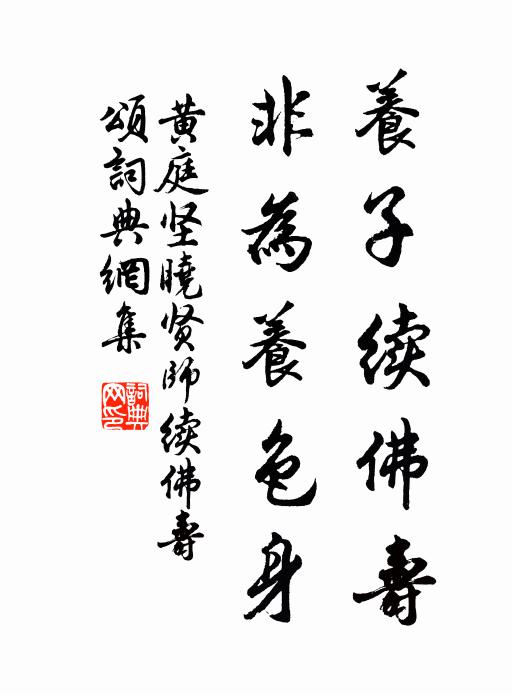 養子续佛壽
非為養色身
黄庭坚曉贤師续佛壽
頌詞典網集
詞典网印